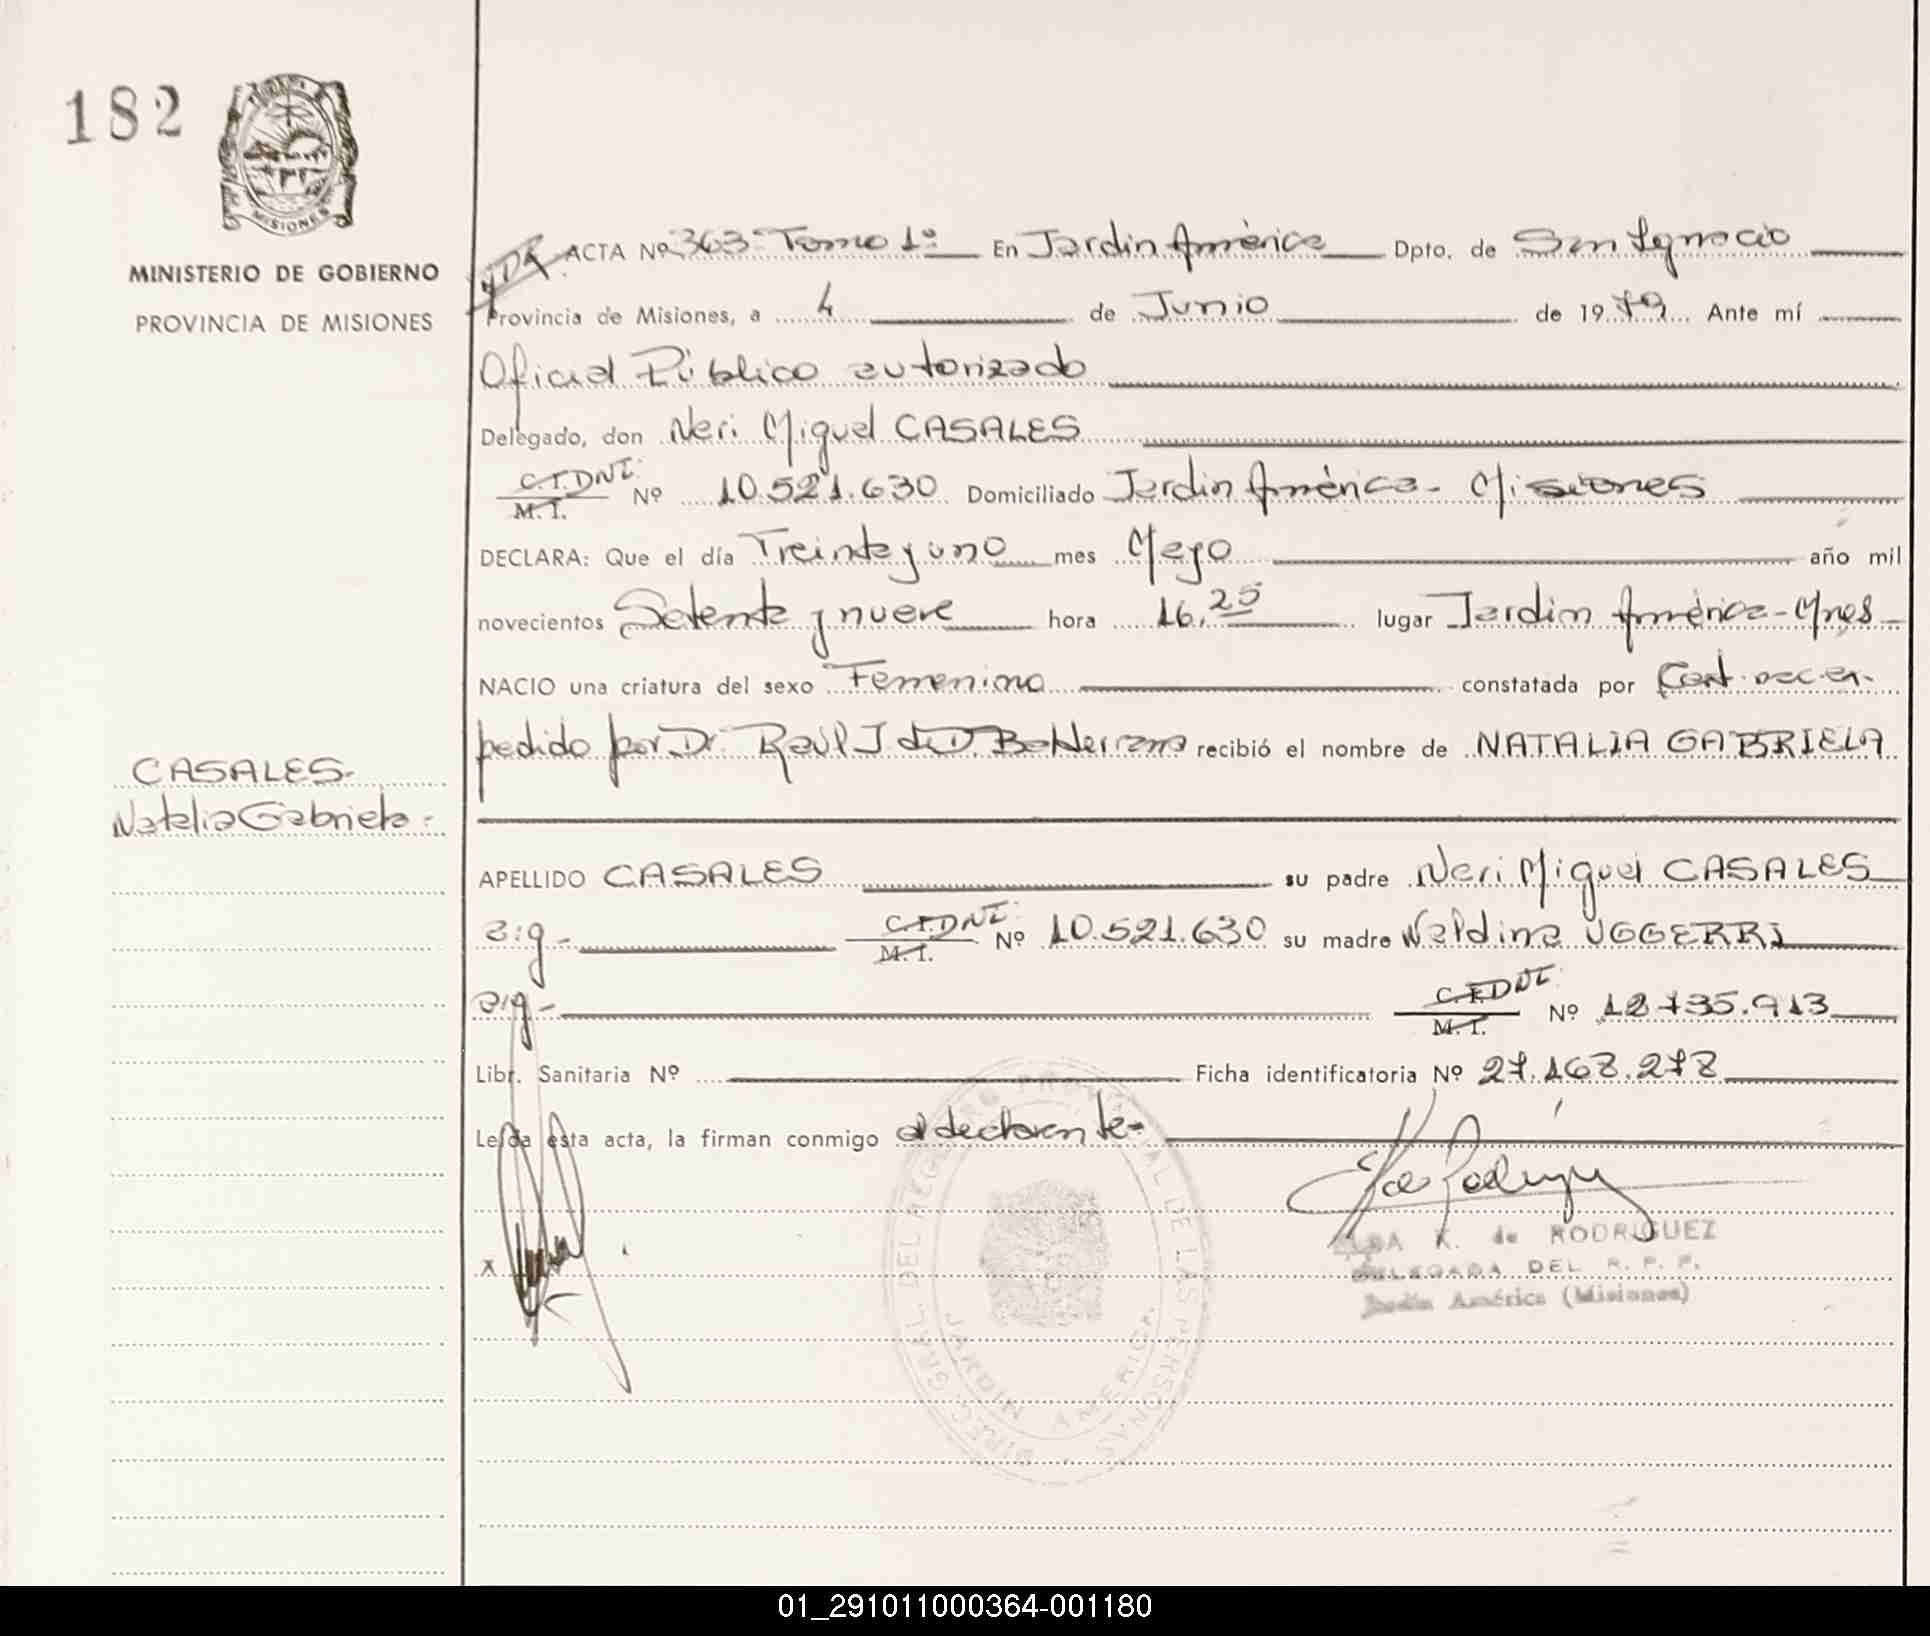 182
MISIONES
MINISTERIO DE GOBIERNO
PROVINCIA DE MISIONES
CASALES-
Natalia Gabriela-
ACTA Nº 363- Tomo 1º En Jardin América Dpto. de San Ignacio
Provincia de Misiones, a 4 de Junio de 1979 Ante mí
Oficial Público autorizado
Delegado, don Neri Miguel CASALES
C.I. DNI. M. I. Nº 10.521.630 Domiciliado Jardin América- Misiones
DECLARA: Que el día Treinta y uno mes Mayo año mil
novecientos Setenta y nueve hora 16,25 lugar Jardin América-Mnes-
NACIO una criatura del sexo Femenino constatada por Cert. nac. ex-
pedido por Dr. Raúl J. de D. recibió el nombre de NATALIA GABRIELA
APELLIDO CASALES su padre Neri Miguel CASALES
arg- C.I. DNI. M. I. Nº 10.521.630 su madre Waldina UGGERRI
arg- C.I. DNI. M. I. Nº 12.735.913
Libr. Sanitaria Nº Ficha identificatoria Nº 27.168.278
Leída esta acta, la firman conmigo el declarante-
X
K. de RODRIGUEZ
DELEGADA DEL R. P. P.
Jardín América (Misiones)
DIREC. GRAL. DEL REGISTRO PROVINCIAL DE LAS PERSONAS
JARDIN AMERICA
01_291011000364-001180